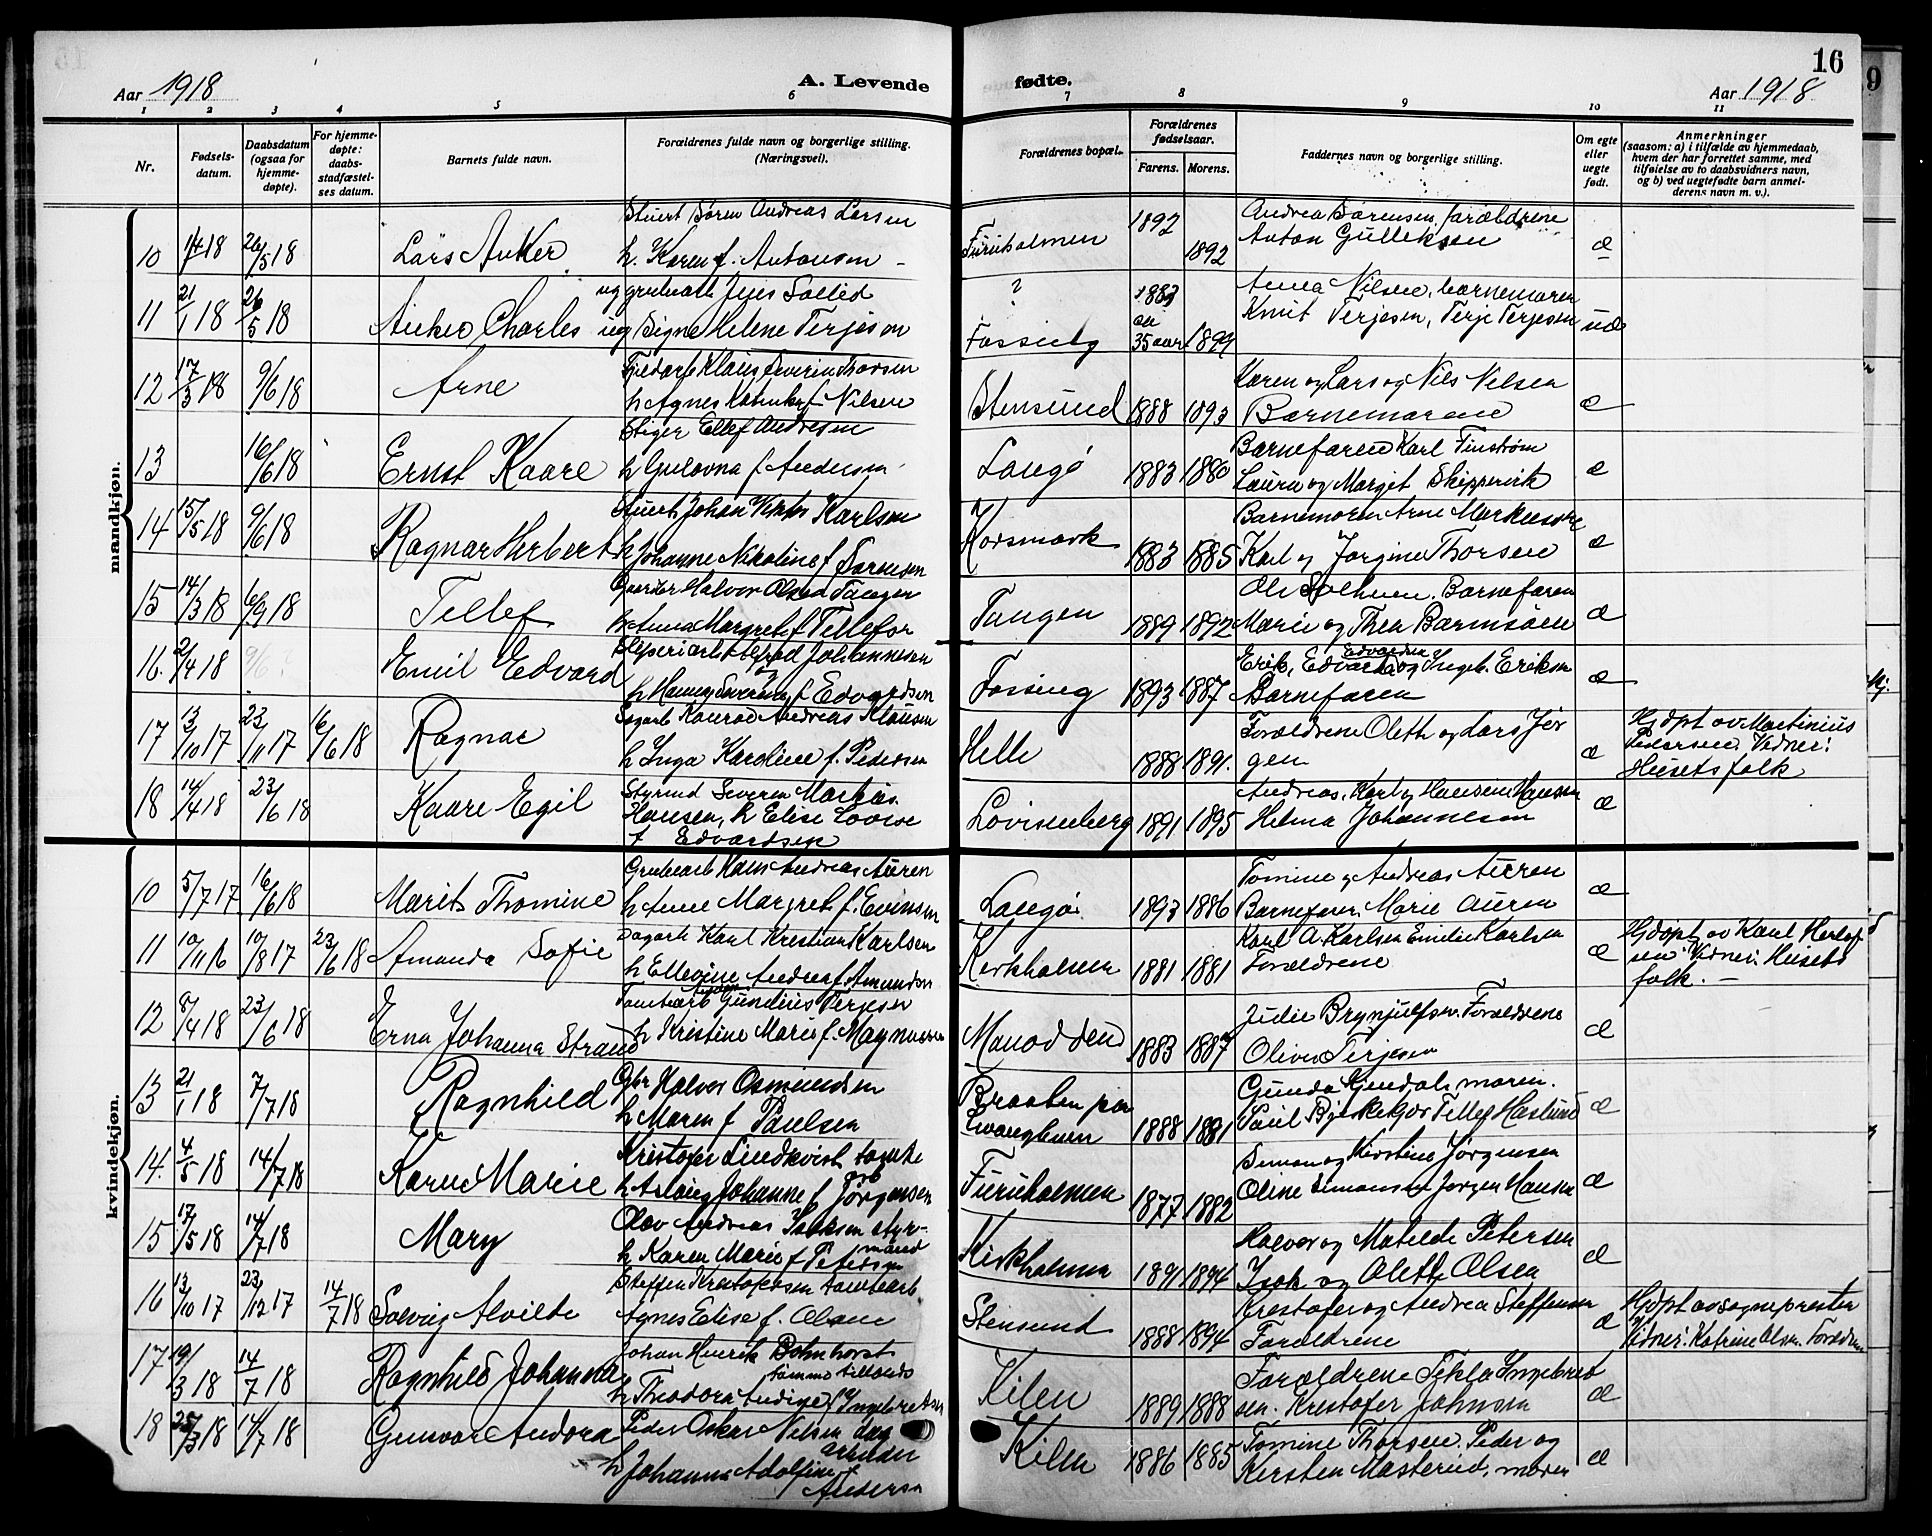 16
Aar 1918 A. Levende fødte. Aar 1918
1 2 3 4 5 6 7 8 9 10 11
Nr.
Fødsels-
datum.
Daabsdatum
(ogsaa for
hjemme-
døpte).
For hjemme-
døpte:
daabs-
stadfæstel-
ses datum.
Barnets fulde navn.
Forældrenes fulde navn og borgerlige stilling.
(Næringsvei).
Forældrenes bopæl.
Forældrenes
fødselsaar.
Farens. Morens.
Faddernes navn og borgerlige stilling.
Om egte
eller
uegte
født.
Anmerkninger
(saasom: a) i tilfælde av hjemmedaab,
hvem der har forrettet samme, med
tilføielse av to daabsvidners navn,
og b) ved uegtefødte barn anmel-
derens navn m. v.).
mandkjøn.
Stuert Søren Andreas Larsen 1892 Andrea Sørensen, forældrene
10 1/4 18 26/5 18 Lars Anker h. Karen f. Antonsen Furuholmen 1892 Anton Gulleksen æ
ug grubearb Jens Sollid ? 1883 Anna Nilsen, barnemoren
11 21/1 18 26/5 18 Anker Charles ug Signe Helene Terjesen Fossing 35 aar 1899 Knut Terjesen, Terje Terjesen uæ
Klaus Severin Thorsen Karen og Lars og Nils Nilsen
12 17/3 18 9/6 18 Arne h Agnes f. Nilsen Stensund 1888 1893 Barnemoren æ
Stiger Ellef Andresen Barnefaren Karl Finstrøm
13 16/6 18 Ernst Kaare h Gulovna f Andersen Langø 1883 1880 Laura og Margit Skippervik æ
Stuert Johan Karlsen Barnemoren Arne
14 15/5 18 9/6 18 Ragnar Herbert h Johanne Nikoline f Sørensen Korsmark 1883 1885 Karl og Jørgine Thorsen æ
Halvor Olsen Tangen Barnefaren
15 14/3 18 6/9 18 Tellef h Anna Margrete f Tellefsen Tangen 1889 1892 Marie og Thea æ
Alfred Johannesen Erik, Edvard og Ingeb. Eriksen
16. 2/4 18 9/6 ? Emil Edvard h Hanna Severine f Edvardsen Fossing 1893 1887 Barnefaren æ
Dagarb Konrad Andreas Klausen Forældrene Oleth og Lars Jør
17 13/10 17 23/11 17 16/6 18 Ragnar h Inga Karoline f. Pedersen Helle 1888 1891. gen æ
Hjdøpt av Martinius
Pedersen. Vidner:
Husets folk
Styrmd Severin
18 14/4 18 23/6 18 Kaare Egil Hansen, h Elise Lovise Lovisenberg 1891 1895 Andreas, Karl og Hansine Hansen æ
f Edvardsen Helma Johannesen
kvindekjøn.
Grubearb Hans Andreas Auren Tomine og Andreas Auren
10 5/7 17 16/6 18 Marit Thomine h Anne Margret f. Evensen Langø. 1893 1886 Barnefaren Marie Auren æ
Dagarb Karl Kristian Karlsen Karl A. Karlsen Emilie Karlsen
11 10/11 16 10/8 17 23/6 18 Amanda Sofie h Ellevine Andrea f Amundsen Kirkholmen 1881 1881 Forældrene æ
Hjdøpt av Karl
sen Vidner: Husets
folk. –
Tomtearb Gundius Terjesen Julie Brynjulfsen Forældrene
12 8/4 18 23/6 18 Erna Johanna Strand h Kristine Marie f. Magnussen Manodden 1883 1887 Oliver Terjesen æ
Gbr Halvor Osmundsen Gunda moren.
13 21/1 18 7/7 18 Ragnhild h Maren f Paulsen Braaten paa 1888 1881 Paul Tellef Haslund æ
Kristofer Lindkvist Simon og Kirstine Jørgensen
14. 4/5 18 14/7 18 Karen Marie h Aslaug Johanne f Jørgensen Furuholmen 1877 1882 Oline Simonsen Jørgen Hansen æ
Olav Andreas Isaksen styr-
mand
15 17/5 18 14/7 18 Mary h Karen Marie f Petersen Kirkholmen 1891 1894 Halvor og Matilde Petersen
Isak og Olette Olsen æ
Steffen Kristofersen tomtearb Kristofer og Andrea Steffensen
16 13/10 17 23/12 17 14/7 18 Solveig Alvilde Agnes Elise f. Olsen Stensund 1888 1894 Forældrene æ
Hjdøpt av sognepresten
Vidner: Katrine Olsen. Forældrene
Johan Henrik Bohnhorst
17 19/3 18 14/7 18 Ragnhild Johanna h Theodora f Ingebretsen Kilen 1889 1888 Forældrene Tekla Ingebret
sen. Kristofer Johnsen æ
18 25/3 18 14/7 18 Gunvor Andora Peder Oskar Nilsen dag
arbeider
h Johanna Adolfine f
Andersen Kilen 1886 1885 Tomine Thorsen. Peder og
Kirsten Masterud, moren æ